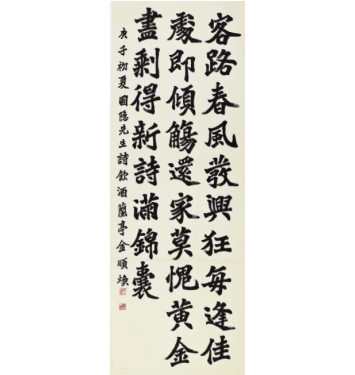 客路春風發興狂每逢佳
處即傾觴還家莫愧黃金
盡剩得新詩滿錦囊
庚子初夏圃隱先生詩飮酒蘭亭金順煥